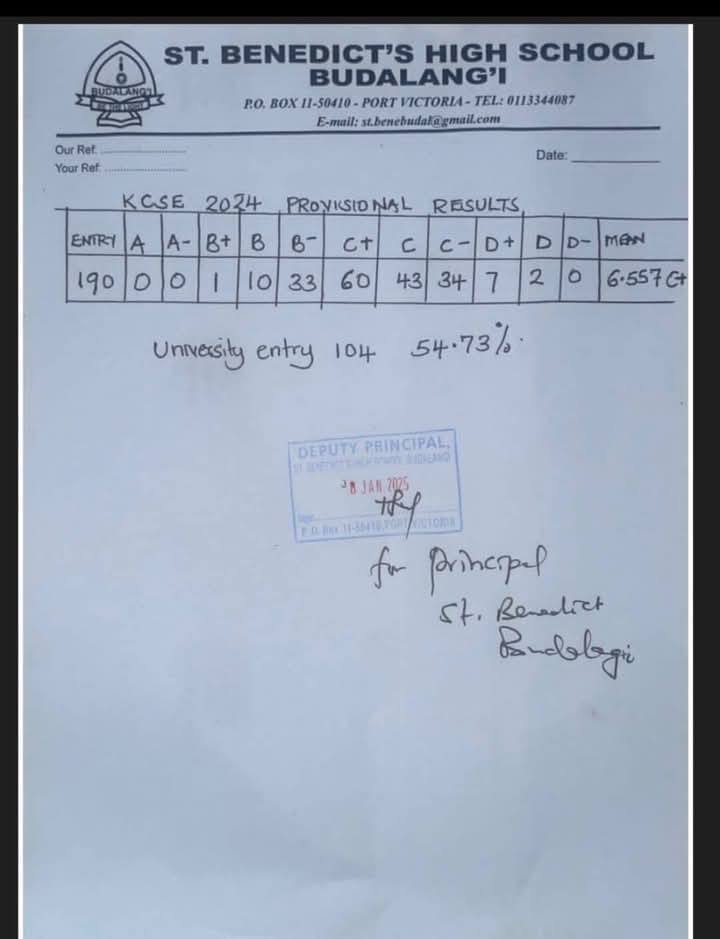 BUDALANG'I
ST. BENEDICT'S HIGH SCHOOL
BUDALANG'I
P.O. BOX 11-50410 - PORT VICTORIA - TEL: 0113344087
E-mail: st.benebudal@gmail.com
Our Ref: ........................
Your Ref: ........................
Date: ____________
KCSE 2024 PROVISIONAL RESULTS
ENTRY A A- B+ B B- C+ C C- D+ D D- MEAN
190 0 0 1 10 33 60 43 34 7 2 0 6.557 C+
University entry 104 54.73%.
DEPUTY PRINCIPAL,
ST. BENEDICT'S HIGH SCHOOL BUDALANGI
8 JAN 2025
P.O. Box 11-50410, PORT VICTORIA
for principal
St. Benedict
Budalagi